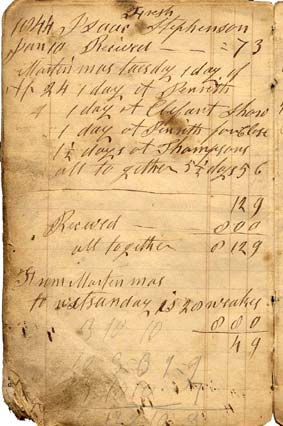 1844 Isaac Stephenson
Jan 10 Recieved — = 7 3
Martin mas tuesday 1 day of
24 1 day at Penrith
1 day at Show
1 day at Penrith for Close
1½ days at Thompsons
all to gether 5½ days 5 6
12 9
Recieved 8 0 0
all together 8 12 9
From Marten mas
to witsanday is 28 weakes
8 8 0
4 9